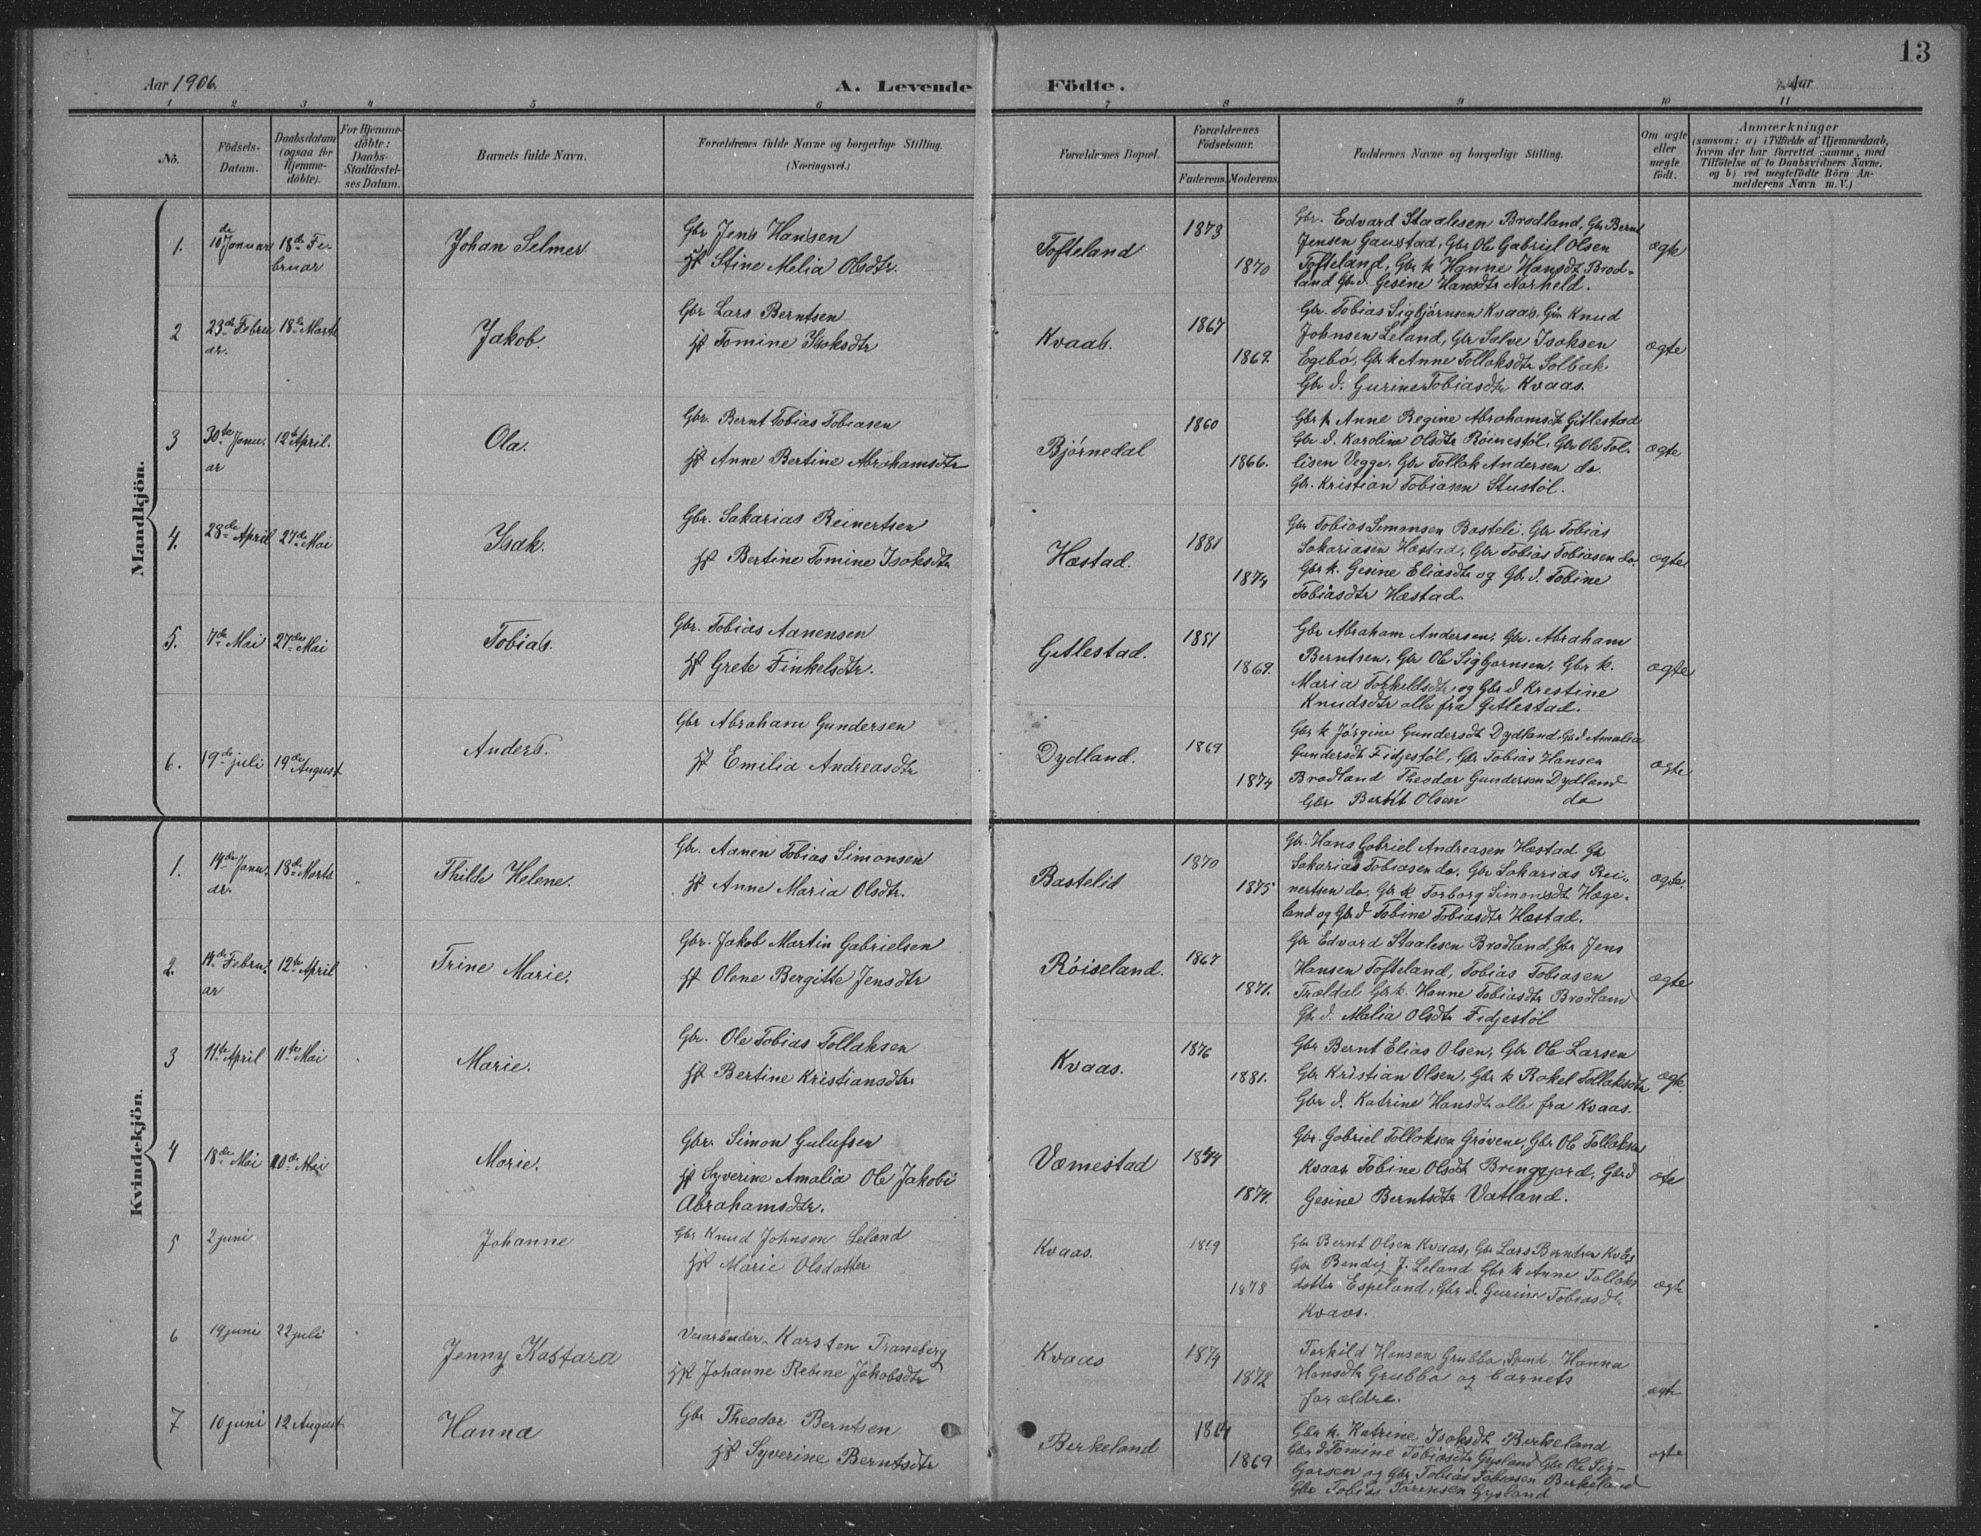 13
Aar 1906.
A. Levende
Födte.
Aar
1 2 3 4 5 6 7 8 9 10 11
No.
Födsels-
Datum.
Daabsdatum
(ogsaa for
Hjemme-
döbte).
For Hjemme-
döbte:
Daabs-
Stadfæstel-
ses Datum.
Barnets fulde Navn.
Forældrenes fulde Navne og borgerlige Stilling.
(Næringsvei.)
Forældrenes Bopæl.
Forældrenes
Födselsaar.
Faderens. Moderens.
Faddernes Navne og borgerlige Stilling.
Om ægte
eller
uægte
födt.
Anmærkninger
(saasom: a) i Tilfælde af Hjemmedaab,
hvem der har forrettet samme, med
Tilföielse af to Daabsvidners Navne,
og b) ved uægtefödte Börn An-
melderens Navn m. V.)
Mandkjön.
1. 10de Januar 18de Fe-
bruar
Johan Selmer.
Gbr Jens Hansen
Stine Malia Olsdtr.
Tofteland
1873
1870
Gbr. Edvard Staalesen Brodland, Gbr Bernt
Jensen Gaustad, Gbr Ole Gabriel Olsen
Tofteland, Gbr k Hanne Hansdt Brod-
land Gbr d. Gesine Hansdtr
ægte
2 23de Febru
ar. 18de Marts
Jakob.
Gbr Lars Berntsen
Tomine Isaksdtr
Kvaas.
1867
1869.
Gbr. Tobias Sigbjørnsen Kvaas, Gbr Knud
Johnsen Leland, Gbr Salve Isaksen
Egebø, Gbr k Anne Tollaksdtr Solbak.
Gbr d. Gurine Tobiasdtr Kvaas.
ægte
3 30te Janu-
ar 12te April.
Ola.
Gbr. Bernt Tobias Tobiasen
Anne Bertine Abrahamsdtr
Bjørnedal
1860
1866.
Gbr k Anne Regine Abrahamsdt Gitlestad
Gbr d. Karoline Olsdtr Røinestøl, Gbr Ole Tol-
lisen Vegge, Gbr Tollak Andersen do.
Gbr. Kristian Tobiasen Stustøl.
ægte
4. 28de April 27de Mai
Isak.
Gbr. Sakarias Reinertsen
Bertine Tomine Isaksdtr
Hæstad.
1881
1874
Gbr Tobias Simonsen Basteli. Gbr Tobias
Sakariasen Hæstad, Gbr Tobias Tobiasen do.
Gbr k. Gesine Eliasdtr og Gbr d. Tobine
Tobiasdtr Hæstad.
ægte
5. 7de Mai 27de Mai
Tobias.
Gbr. Tobias Aanensen
Grete Finkelsdtr.
Gitlestad.
1851
1869.
Gbr Abraham Andersen, Gbr. Abraham
Berntsen, Gbr Ole Sigbjørnsen, Gbr k.
Maria Torkeldsdtr og Gbr d Krestine
Knudsdtr alle fra Gitlestad.
ægte
6. 19de juli 19de August
Anders.
Gbr Abraham Gundersen
Emilia Andreasdtr
Dydland.
1869
1874
Gbr k Jørgine Gundersdt Dydland, Gbd Amalia
Gundersdt Fidjestøl, Gbr Tobias Hansen
Brodland Theodor Gundersen Dydland
Gbr Berntt Olsen do
ægte
Kvindekjön.
1. 14de Janu-
ar. 18de Marts
Thilde Helene.
Gbr. Aanen Tobias Simonsen
Anne Maria Olsdtr.
Bastelid
1870
1875
Gbr. Hans Gabriel Andreasen Hæstad Gbr
Sakarias Tobiasen do. Gbr Sakarias Rei-
nertsen do. Gbr k Torborg Simonsdt Hæge-
land og Gbr d Tobine Tobiasdtr Hæstad.
ægte.
2. 14de Febru-
ar 12te April
Trine Marie.
Gbr. Jakob Martin Gabrielsen
Olene Bergitte Jensdtr
Røiseland.
1867
1871.
Gbr Edvard Staalesen Brodland, Gbr Jens
Hansen Tofteland, Tobias Tobiasen
Trældal Gbr k. Hanne Tobiasdtr Brodland
Gbr d. Malia Olsdtr Fidjestøl
ægte
3 11te April 11te Mai
Marie.
Gbr. Ole Tobias Tollaksen
Bertine Kristiansdtr
Kvaas.
1876
1881.
Gbr Bernt Elias Olsen, Gbr Ole Larsen
Gbr Kristian Olsen, Gbr k Rakel Tollaksdtr
Gbr d. Katrine Hansdtr alle fra Kvaas.
ægte
4 18de Mai
Marie.
Gbr. Simon Gulufsen
Syverine Amalia Ole Jakobi
Abrahamsdtr.
Væmestad
1874.
Gbr. Gabriel Tollaksen Grøvene, Gbr Ole Tollaksen
Kvaas Tobine Olsdt Bringsjord, Gbr d
Gesine Berntsdtr Vatland.
5 2 juni
Johanne
Gbr Knud Johnsen Leland
Marie Olsdatter
Kvaas.
1878
Gbr Bernt Olsen Kvaas, Gbr Lars Berntsen Kvaas
Gbr Bendig J. Leland Gbr k Anne Tollaks
datter Espeland, Gbr d Gurine Tobiasdt
Kvaas.
ægte
6 19 juni 22 juli
Jenny Kasfara
Karsten Traneberg
Johanne Rebine Jakobsdtr
Kvaas
1874
1872
Torkild Hansen Grubba, Hanna
Hansdtr Grubba og barnets
forældre.
ægte
7 10 juni 12 August
Hanna
Gbr Theodor Berntsen
Syverine Berntsdtr
Berkeland
1869
Gbr k. Katrine Isaksdt Birkeland
Gbr d Tomine Tobiasdtr Gysland Gbr Ole
og Gbr Tobias Tobiasen Birkeland
Gbr Tobias Tørensen Gysland
ægte